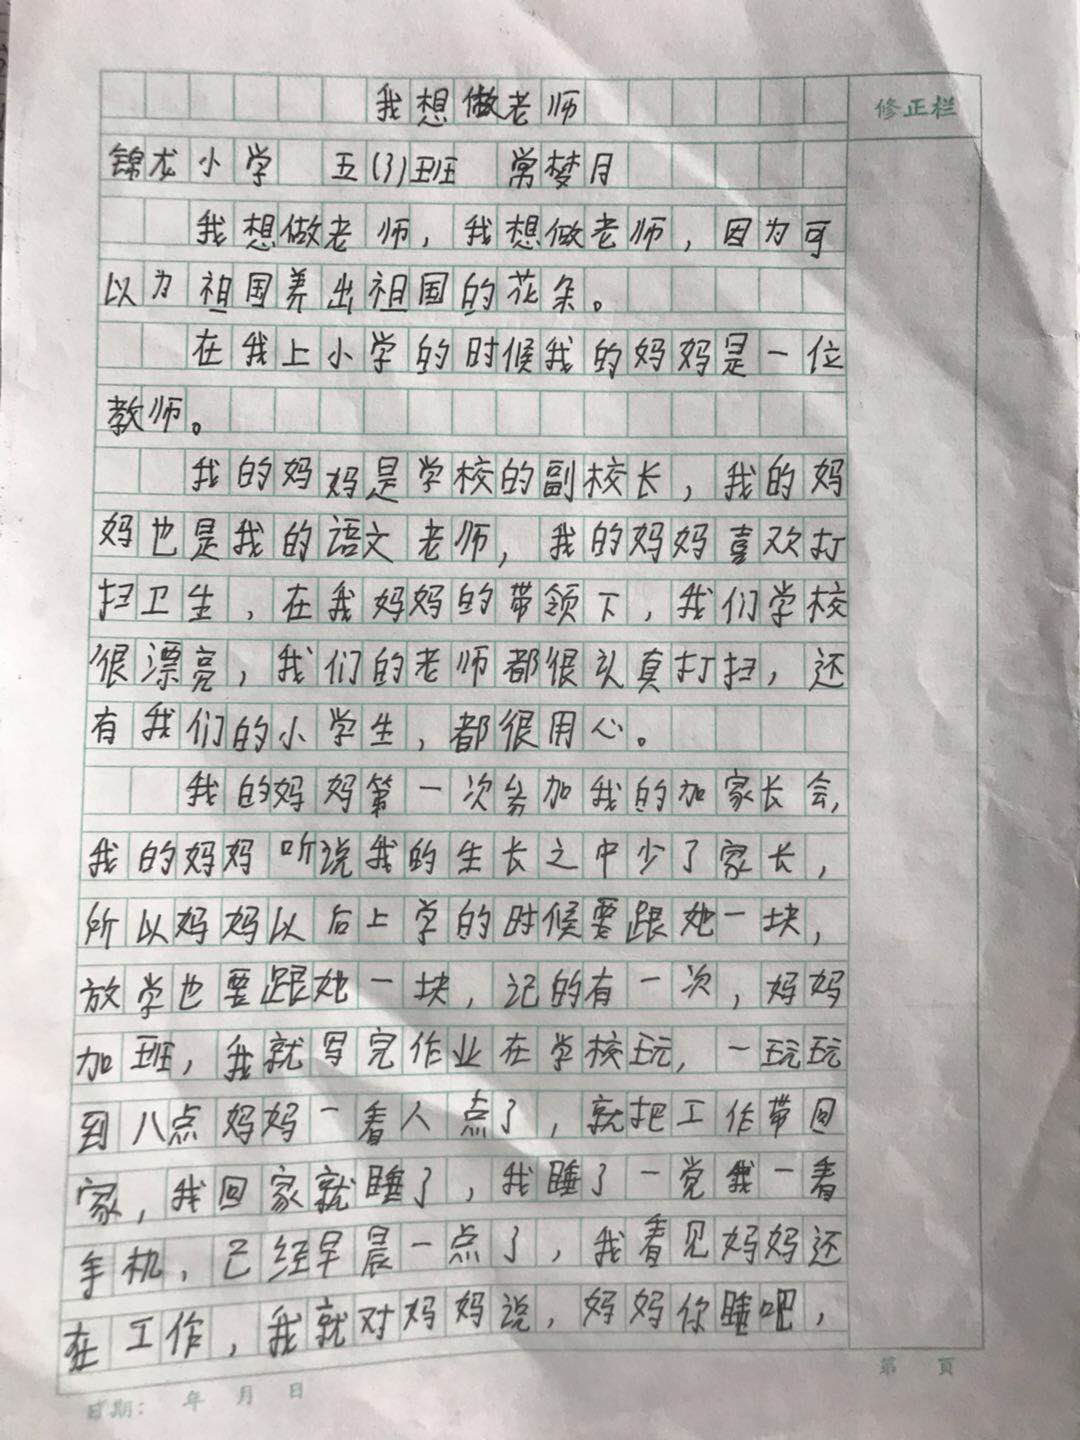 我想做老师
修正栏
锦龙小学 五(3)班 常梦月
我想做老师，我想做老师，因为可
以为祖国养出祖国的花朵。
在我上小学的时候我的妈妈是一位
教师。
我的妈妈是学校的副校长，我的妈
妈也是我的语文老师，我的妈妈喜欢打
扫卫生，在我妈妈的带领下，我们学校
很漂亮，我们的老师都很认真打扫，还
有我们的小学生，都很用心。
我的妈妈第一次参加我的加家长会，
我的妈妈听说我的生长之中少了家长，
所以妈妈以后上学的时候要跟她一块，
放学也要跟她一块，记的有一次，妈妈
加班，我就写完作业在学校玩，一玩玩
到八点妈妈一看八点了，就把工作带回
家，我回家就睡了，我睡了一觉我一看
手机，已经早晨一点了，我看见妈妈还
在工作，我就对妈妈说，妈妈你睡吧，
第 页
日期： 年 月 日